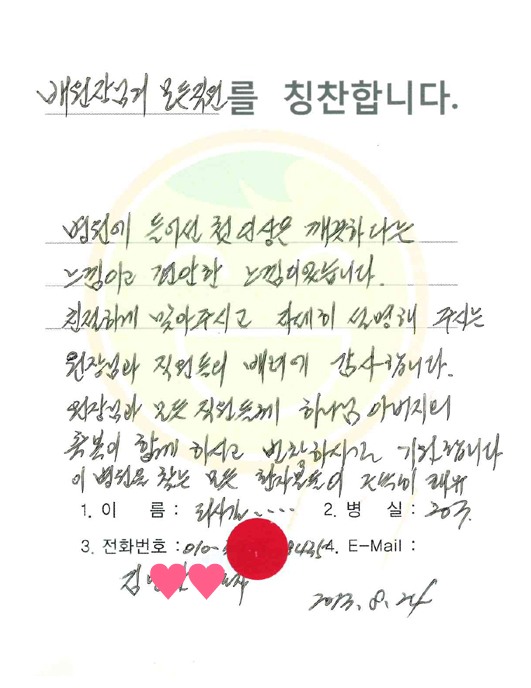 배원장님과 모든직원를 칭찬합니다.
병원에 들어선 첫 인상은 깨끗하다는
느낌이고 편안한 느낌이었습니다.
친절하게 맞아주시고 자세히 설명해 주시는
원장님과 직원들의 배려에 감사합니다.
원장님과 모든 직원들께 하나님 아버지의
축복이 함께 하시고 번창하시기를 기원합니다
이 병원을 찾는 모든 환자분들이
1. 이 름 : 2. 병 실 : 203.
3. 전화번호 : 010- 4. E-Mail :
김
2013. 8. 24